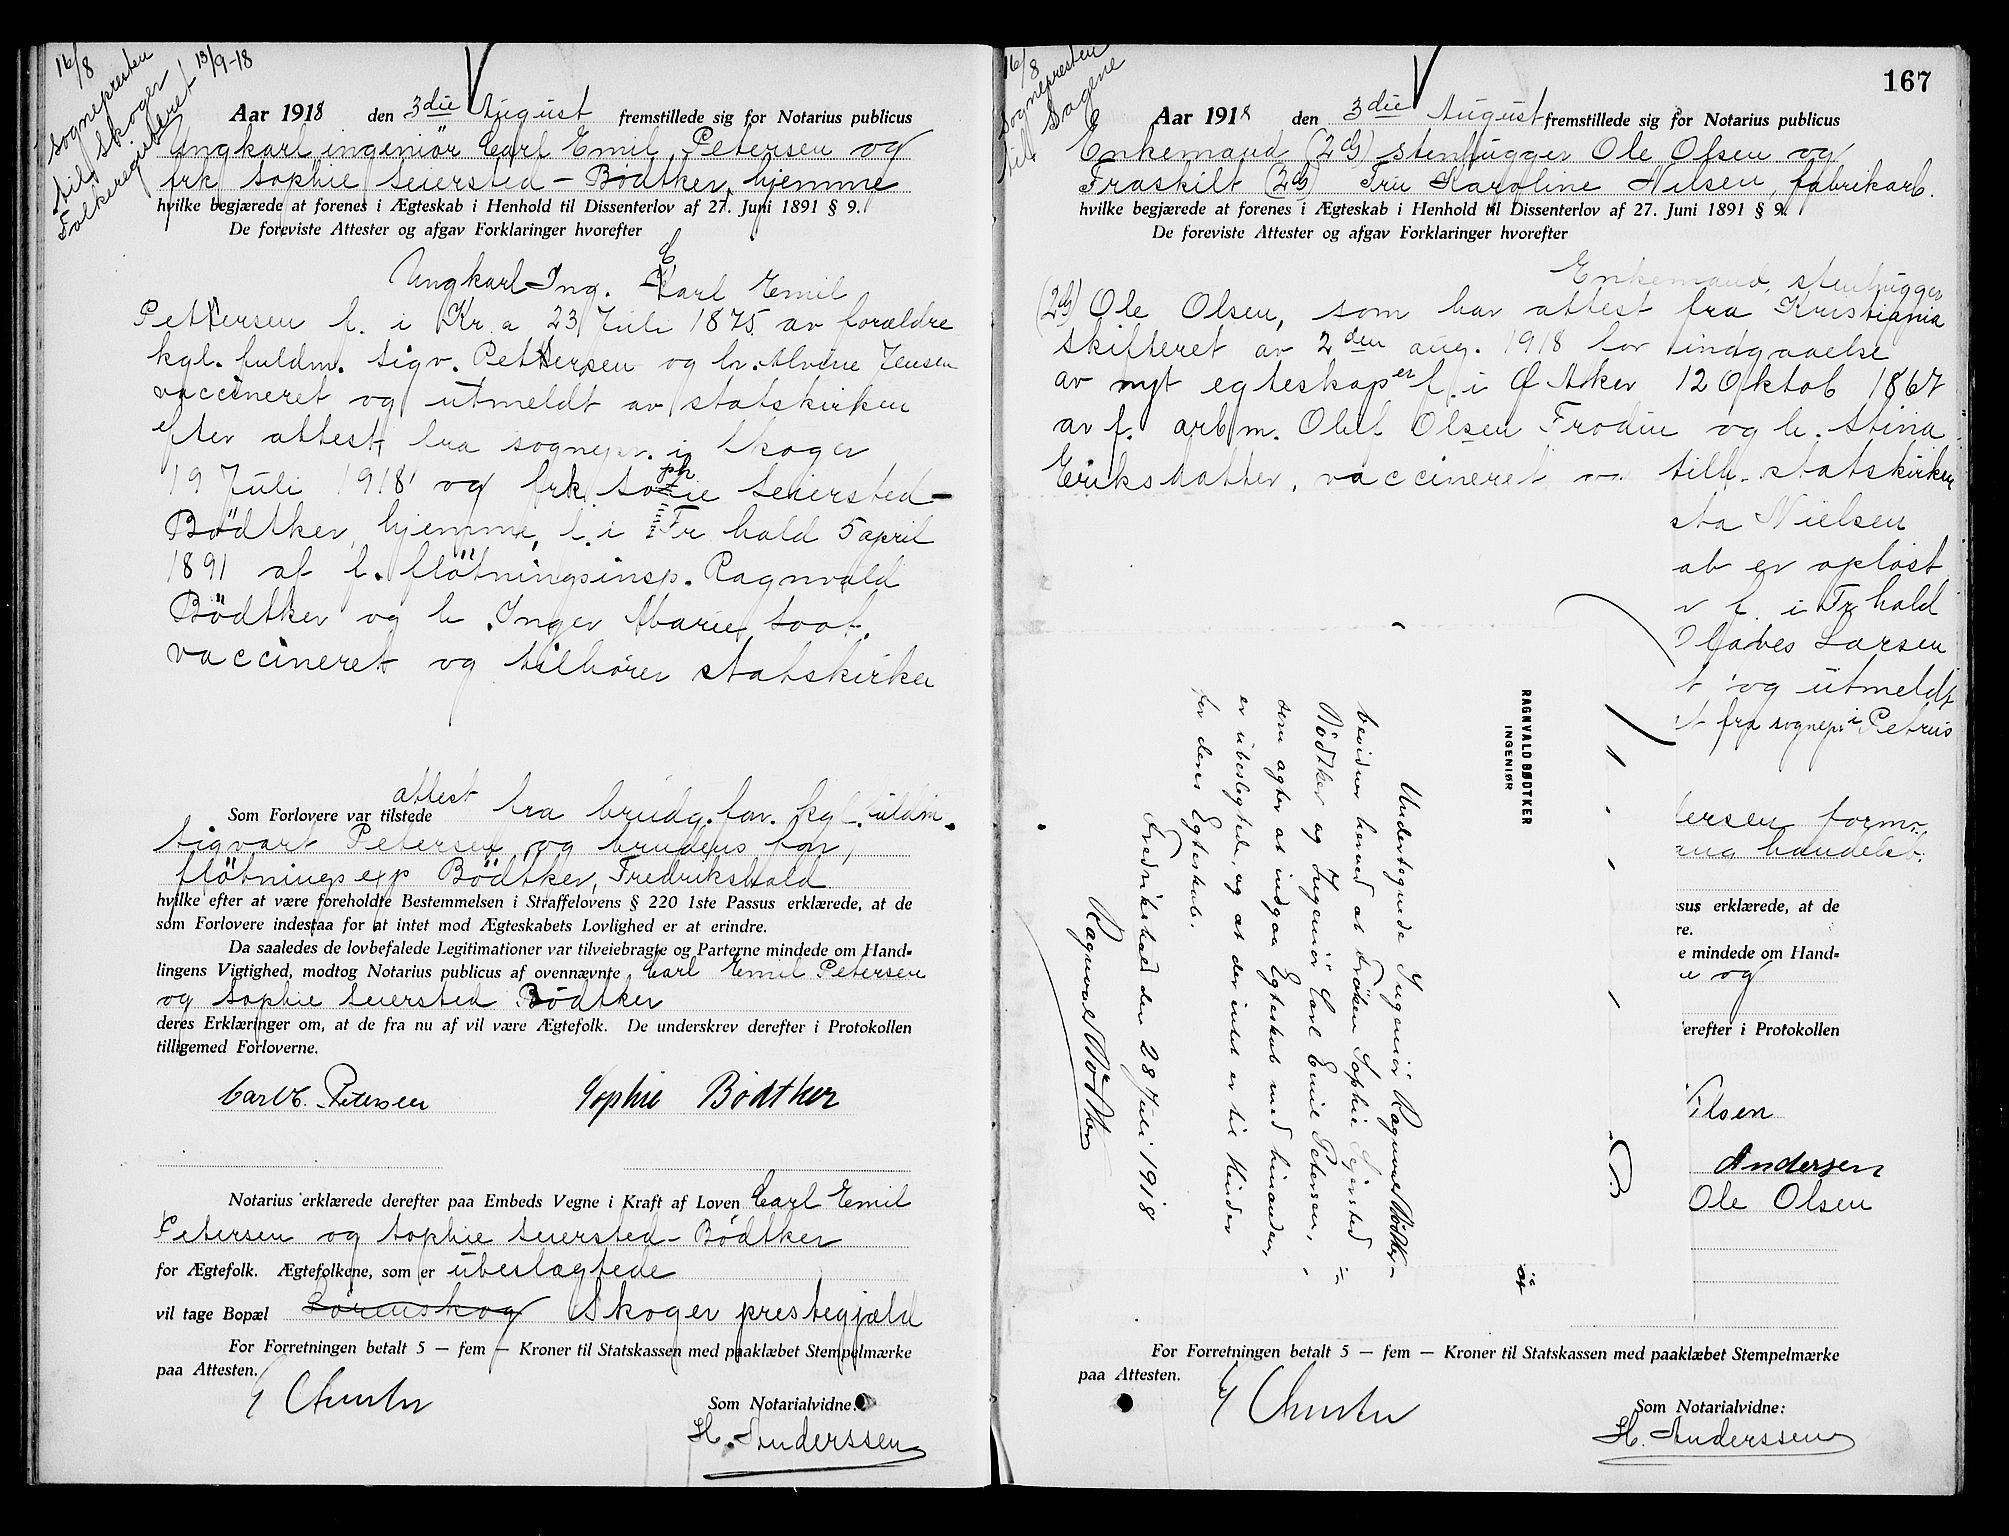 16/8
Sognepresten
til Skoger
Folkeregisteret 13/9-18
Aar 1918 den 3die August fremstillede sig for Notarius publicus
Ungkarl ingeniör Carl Emil Petersen og
frk Sophie Seiersted-Bødtker, hjemme
hvilke begjærede at forenes i Ægteskab i Henhold til Dissenterlov af 27. Juni 1891 § 9.
De foreviste Attester og afgav Forklaringer hvorefter
Ungkarl Ing. Carl Emil
Pettersen f. i Kr.a 23 Juli 1875 av forældre
kgl. fuldm. Sigv. Pettersen og h. Alvine Jensen
vaccineret og utmeldt av statskirken
efter attest fra sognepr. i Skoger
19 Juli 1918 og frk. Sophie Seiersted-
Bødtker, hjemme, f. i Fr hald 5 april
1891 af f. flötningsinsp. Ragnvald
Bödtker og h. Inger Marie Soot.
vaccineret og tilhører statskirken
Som Forlovere var tilstede attest fra brudg. far. kgl. fuldm.
Sigvart Petersen og brudens far,
flötningsexp Bödtker, Fredrikshald
hvilke efter at være foreholdte Bestemmelsen i Straffelovens § 220 1ste Passus erklærede, at de
som Forlovere indestaa for at intet mod Ægteskabets Lovlighed er at erindre.
Da saaledes de lovbefalede Legitimationer var tilveiebragte og Parterne mindede om Hand-
lingens Vigtighed, modtog Notarius publicus af ovennævnte Carl Emil Petersen
og Sophie Seiersted Bödtker
deres Erklæringer om, at de fra nu af vil være Ægtefolk. De underskrev derefter i Protokollen
tilligemed Forloverne.
Carl E. Petersen Sophie Bødtker
Notarius erklærede derefter paa Embeds Vegne i Kraft af Loven Carl Emil
Petersen og Sophie Seiersted-Bödtker
for Ægtefolk. Ægtefolkene, som er ubeslægtede
vil tage Bopæl Lörenskog Skoger prestegjæld
For Forretningen betalt 5 — fem — Kroner til Statskassen med paaklæbet Stempelmærke
paa Attesten.
Som Notarialvidne:
H. Anderssen
167
16/8
Sognepresten
til Sagene
Aar 1918 den 3die August fremstillede sig for Notarius publicus
Enkemand (2dG) stenhugger Ole Olsen og
Fraskilt (2dG) Fru Karoline Nilsen, fabrikarb.
hvilke begjærede at forenes i Ægteskab i Henhold til Dissenterlov af 27. Juni 1891 § 9.
De foreviste Attester og afgav Forklaringer hvorefter
Enkemand, stenhugger
(2dG) Ole Olsen, som har attest fra Kristiania
skifteret av 2den aug. 1918 for indgaaelse
av nyt egteskap er f. i Ø Aker 12 Oktob 1867
av f. arbm. Oluf Olsen Frodin og h. Stina
Eriksdatter, vaccineret og tilh. statskirken
sta Nielsen
ab er opløst
f. i Fr hald
Larsen
t og utmeldt
t fra sognepr i Petrus
dersen
handelsb.
ssus erklærede, at de
re.
e mindede om Hand-
og
derefter i Protokollen
ilsen
Andersen
Ole Olsen
RAGNVALD BØDTKER
INGENIØR
Undertegnede Ingeniör Ragnvald Bödtker
bevidner herved at Fröken Sophie Sejersted
Bödtker og Ingeniör Carl Emil Petersen,
som agter at indgaa Egteskab med hinanden,
er ubeslegtede, og at der intet er til Hinder
for deres Egteskab.
Fredrikshald den 28 Juli 1918
Ragnvald Bödtker
For Forretningen betalt 5 — fem — Kroner til Statskassen med paaklæbet Stempelmærke
paa Attesten.
Som Notarialvidne:
H. Anderssen